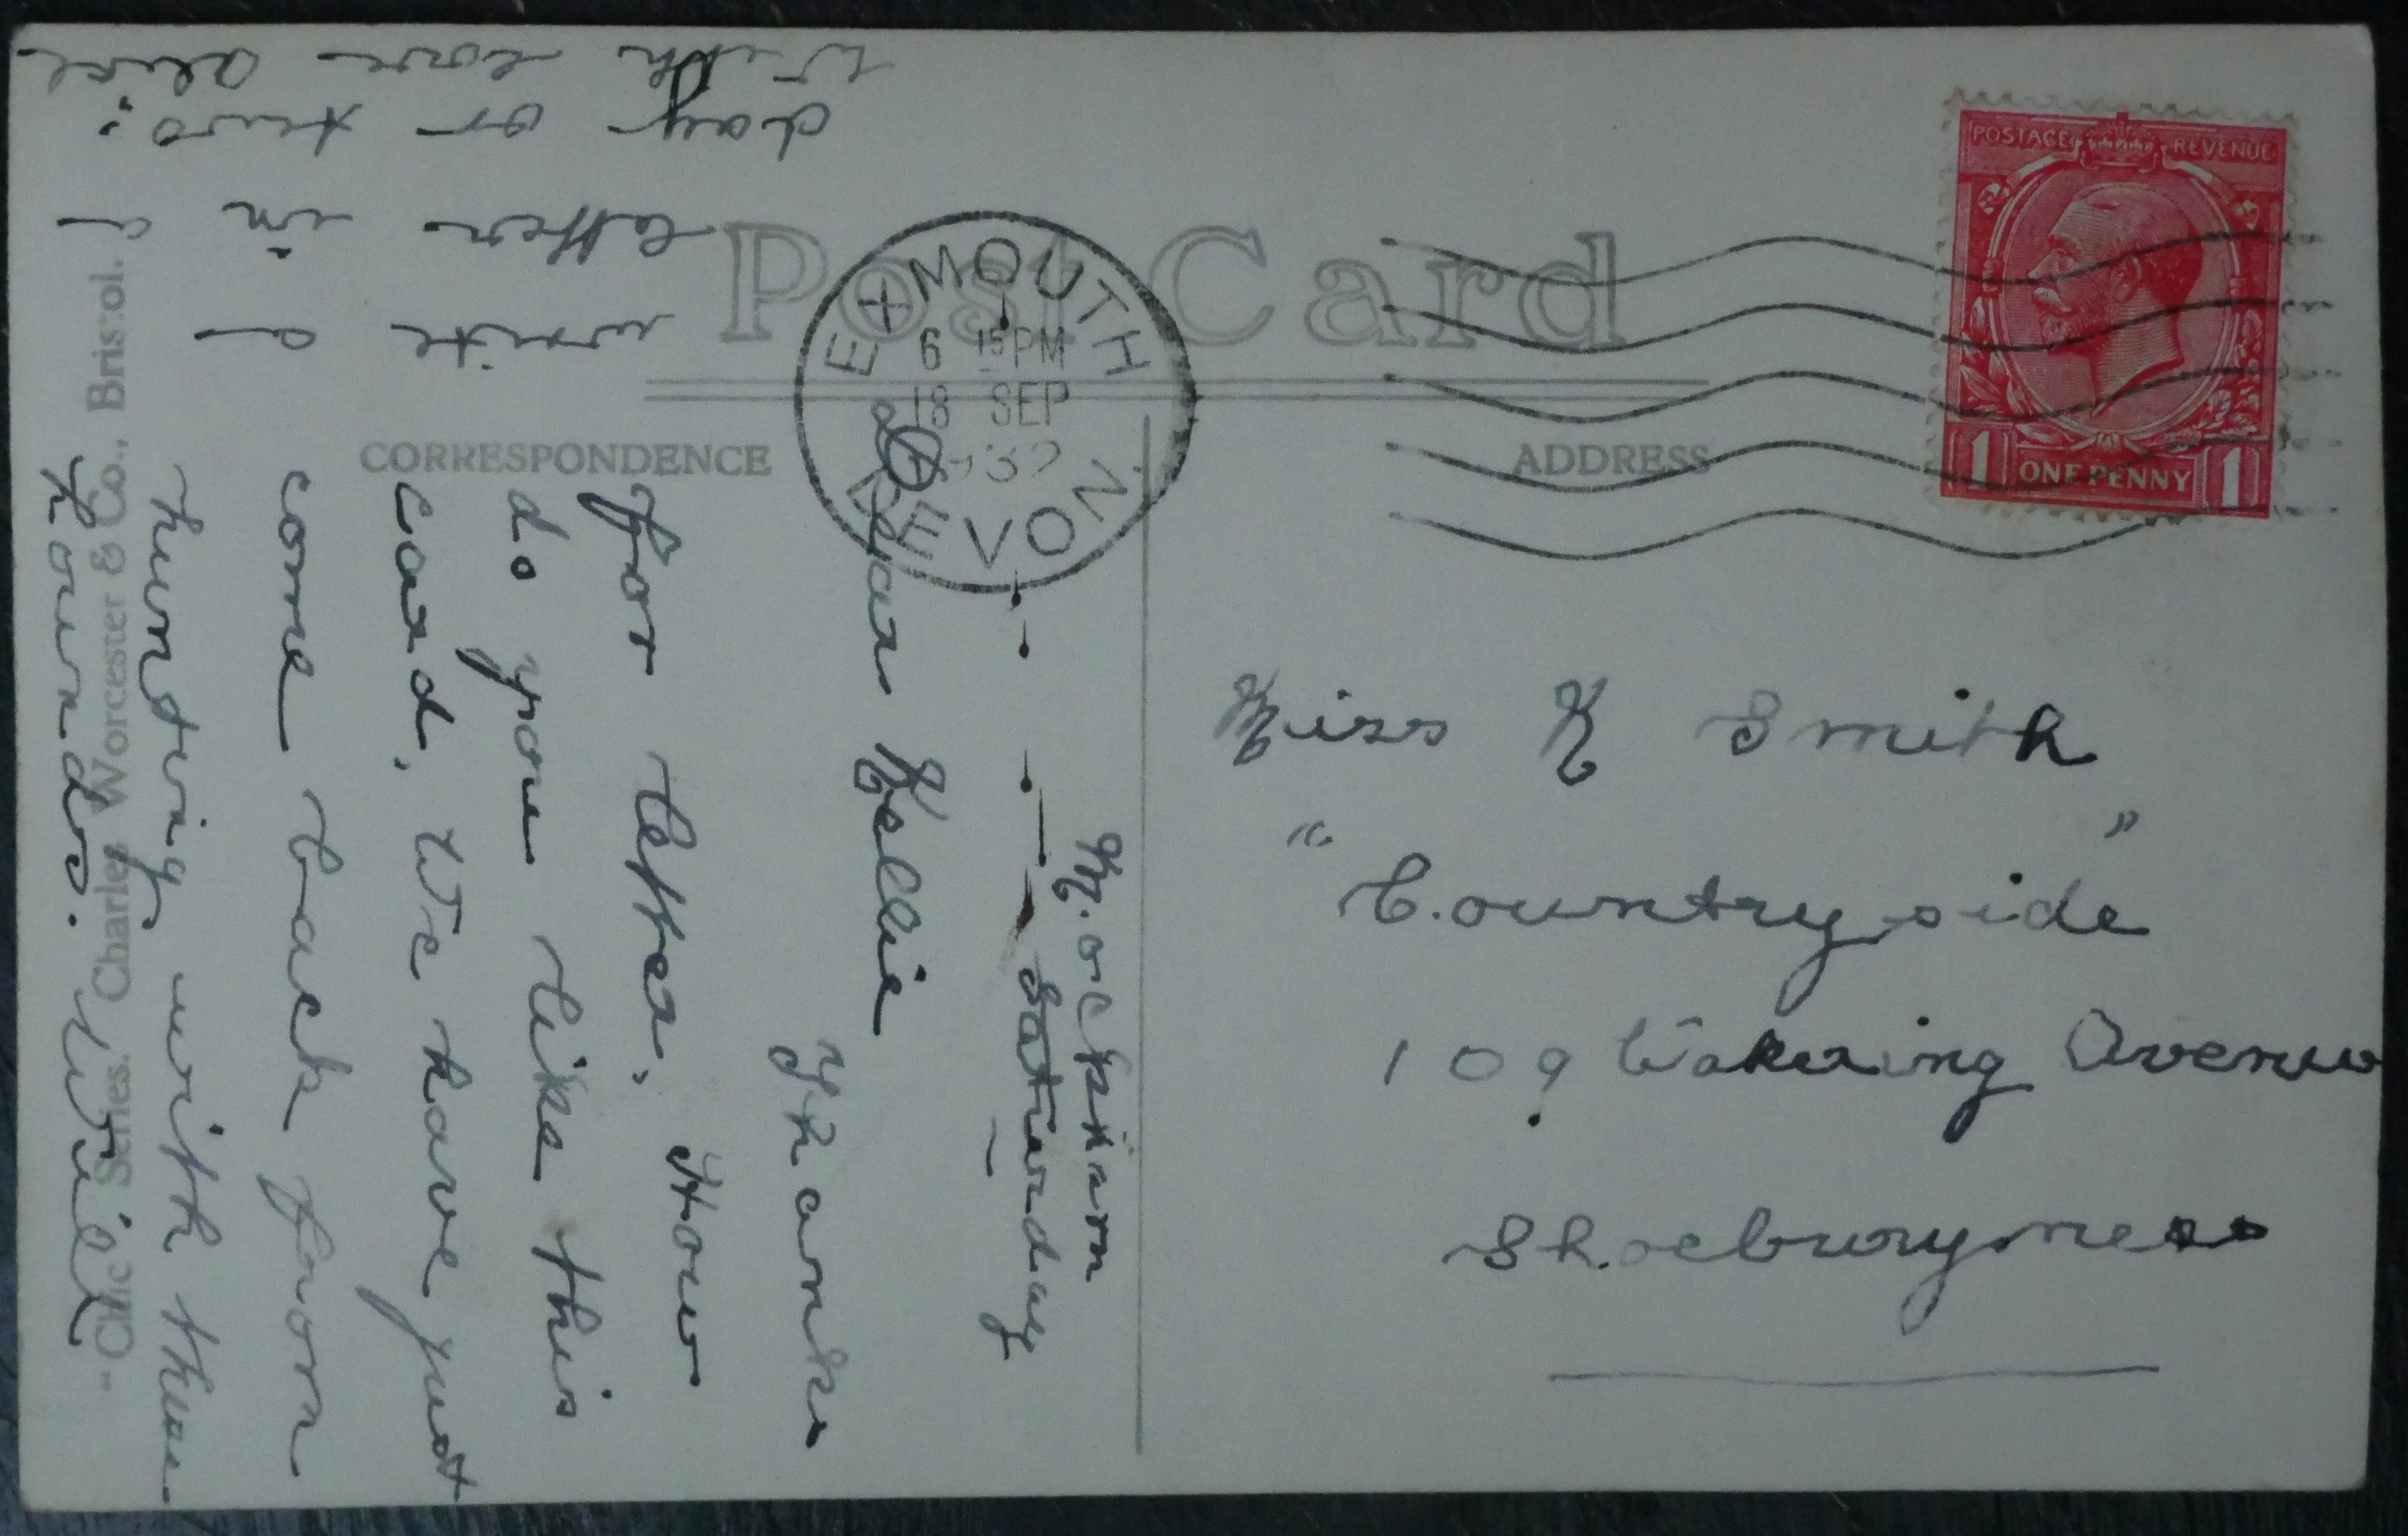 Post Card
CORRESPONDENCE
ADDRESS
EXMOUTH
6 15 PM
18 SEP
DEVON
POSTAGE REVENUE
1 ONE PENNY 1
Miss K Smith
" Countryside "
109 Wakering Avenue
Shoeburyness
Saturday
Dear Kellie
Thanks
for letter, How
do you like this
card, We have just
come back from
hunting with these
hounds. Will
write
letter in a
day or two.
With love
Chic Series. Charles Worcester & Co., Bristol.